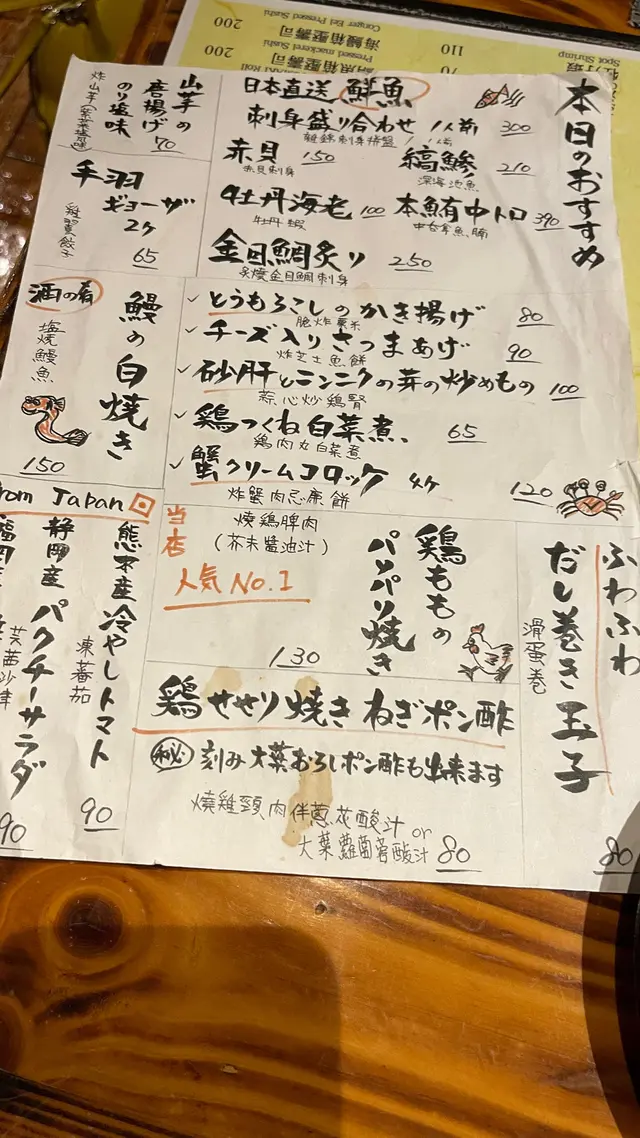 本日のおすすめ
日本直送 鮮魚
刺身盛り合わせ 1人前 300
雜錦刺身拼盤 1人前
赤貝 150
赤貝刺身
縞鯵 210
深海池魚
牡丹海老 100
牡丹蝦
本鮪中トロ 390
中吞拿魚腩
金目鯛炙り 250
炙燒金目鯛刺身
山芋の
唐揚げ
のり塩味
70
手羽
ギョーザ
2ヶ
65
雞翼餃子
酒の肴
鰻の白焼き
塩燒鰻魚
150
とうもろこしのかき揚げ 80
脆炸粟米
チーズ入りさつまあげ 90
炸芝士魚餅
砂肝とニンニクの芽の炒めもの 100
蒜心炒鶏腎
鶏つくね白菜煮 65
鶏肉丸白菜煮
蟹クリームコロッケ 4ヶ 120
炸蟹肉忌廉餅
from Japan
熊本産
冷やしトマト
凍蕃茄
90
静岡産
パクチーサラダ
芫茜沙律
90
当店
人気 No.1
鶏ももの
パリパリ焼き
燒鶏脾肉
(芥末醬油汁)
130
ふわふわ
だし巻き玉子
滑蛋卷
80
鶏せせり焼き ねぎポン酢
秘 刻み大葉おろしポン酢も出来ます
燒雞頸肉伴蔥花酸汁 or
大葉蘿蔔蓉酸汁 80
Spot Shrimp
110
70
海鰻箱壓壽司
Conger Eel Pressed Sushi
200
Pressed mackerel Sushi
200